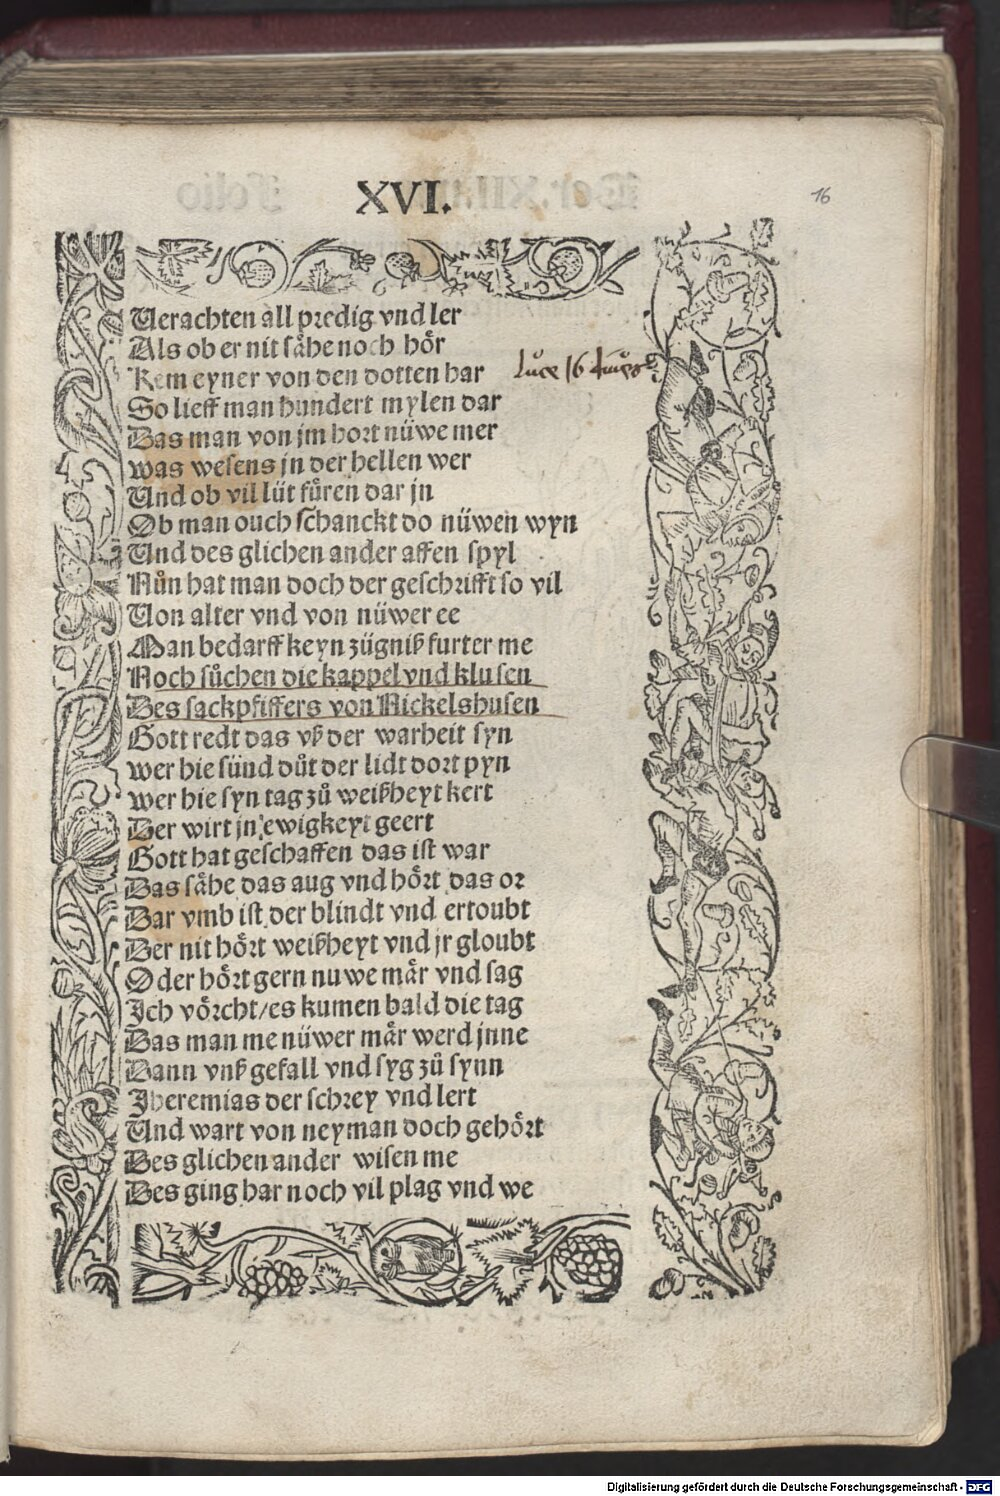 XVI.
16
Verachten all predig vnd ler
Als ob er nit sähe noch hör
Kem eyner von den dotten har
Luce 16
So lieff man hundert mylen dar
Das man von jm hort nüwe mer
was wesens jn der hellen wer
Und ob vil lüt füren dar jn
Ob man ouch schanckt do nüwen wyn
Und des glichen ander affen spyl
Nůn hat man doch der geschrifft so vil
Von alter vnd von nüwer ee
Man bedarff keyn zügniß furter me
Noch sůchen die kappel vnd klusen
Des sackpfiffers von Nickelshusen
Gott redt das vß der warheit syn
wer hie sünd důt der lidt dort pyn
wer hie syn tag zů weißheyt kert
Der wirt jn ewigkeyt geert
Gott hat geschaffen das ist war
Das sähe das aug vnd hört das or
Dar vmb ist der blindt vnd ertoubt
Der nit hört weißheyt vnd jr gloubt
Oder hört gern nuwe mär vnd sag
Ich vörcht/es kumen bald die tag
Das man me nüwer mär werd jnne
Dann vnß gefall vnd syg zů synn
Jheremias der schrey vnd lert
Und wart von neyman doch gehört
Des glichen ander wisen me
Des ging har noch vil plag vnd we
Digitalisierung gefördert durch die Deutsche Forschungsgemeinschaft - DFG